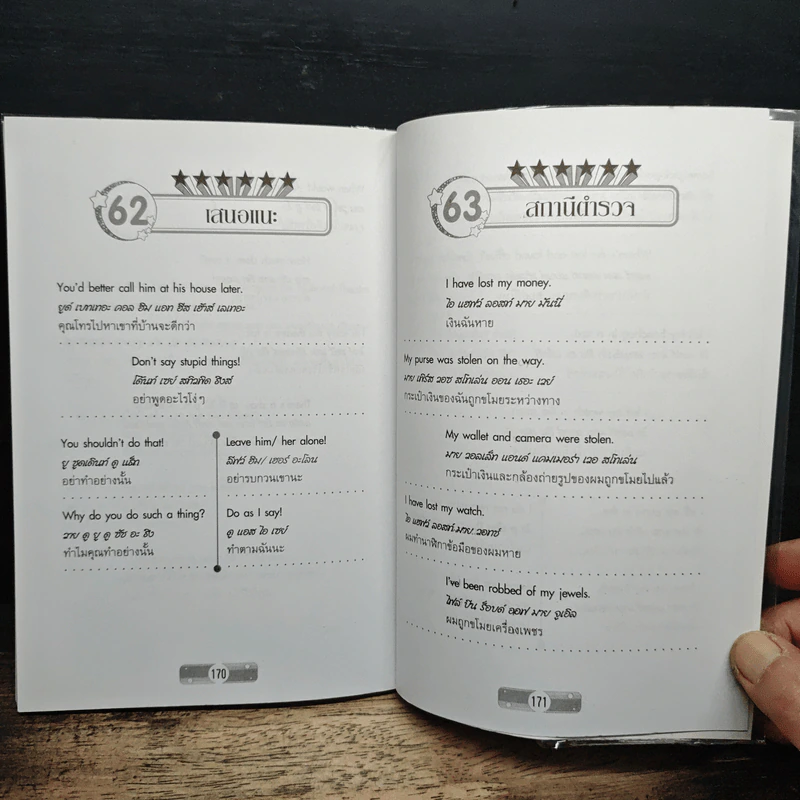 62
เสนอแนะ
You'd better call him at his house later.
ยูด์ เบทเทอะ คอล ฮิม แอท ฮีส เฮ้าส์ เลเทอะ
คุณโทรไปหาเขาที่บ้านจะดีกว่า
Don't say stupid things!
โด๊นท์ เซย์ สติวพิด ธิงส์
อย่าพูดอะไรโง่ๆ
You shouldn't do that!
ยู ชูดเดิ้นท์ ดู แธ็ท
อย่าทำอย่างนั้น
Why do you do such a thing?
วาย ดู ยู ดู ซัช อะ ธิง
ทำไมคุณทำอย่างนั้น
Leave him/ her alone!
ลีฟว์ ฮิม/ เฮอร์ อะโลน
อย่ารบกวนเขานะ
Do as I say!
ดู แอส ไอ เซย์
ทำตามฉันนะ
170
63
สถานีตำรวจ
I have lost my money.
ไอ แฮฟว์ ลอสท์ มาย มันนี่
เงินฉันหาย
My purse was stolen on the way.
มาย เพิร์ส วอซ สโทเล่น ออน เธอะ เวย์
กระเป๋าเงินของฉันถูกขโมยระหว่างทาง
My wallet and camera were stolen.
มาย วอลเล็ท แอนด์ แคมเมอร่า เวอ สโทเล่น
กระเป๋าเงินและกล้องถ่ายรูปของผมถูกขโมยไปแล้ว
I have lost my watch.
ไอ แฮฟว์ ลอสท์ มาย วอทช์
ผมทำนาฬิกาข้อมือของผมหาย
I've been robbed of my jewels.
ไฟล์ บีน ร็อบด์ ออฟ มาย จูเอิล
ผมถูกขโมยเครื่องเพชร
171